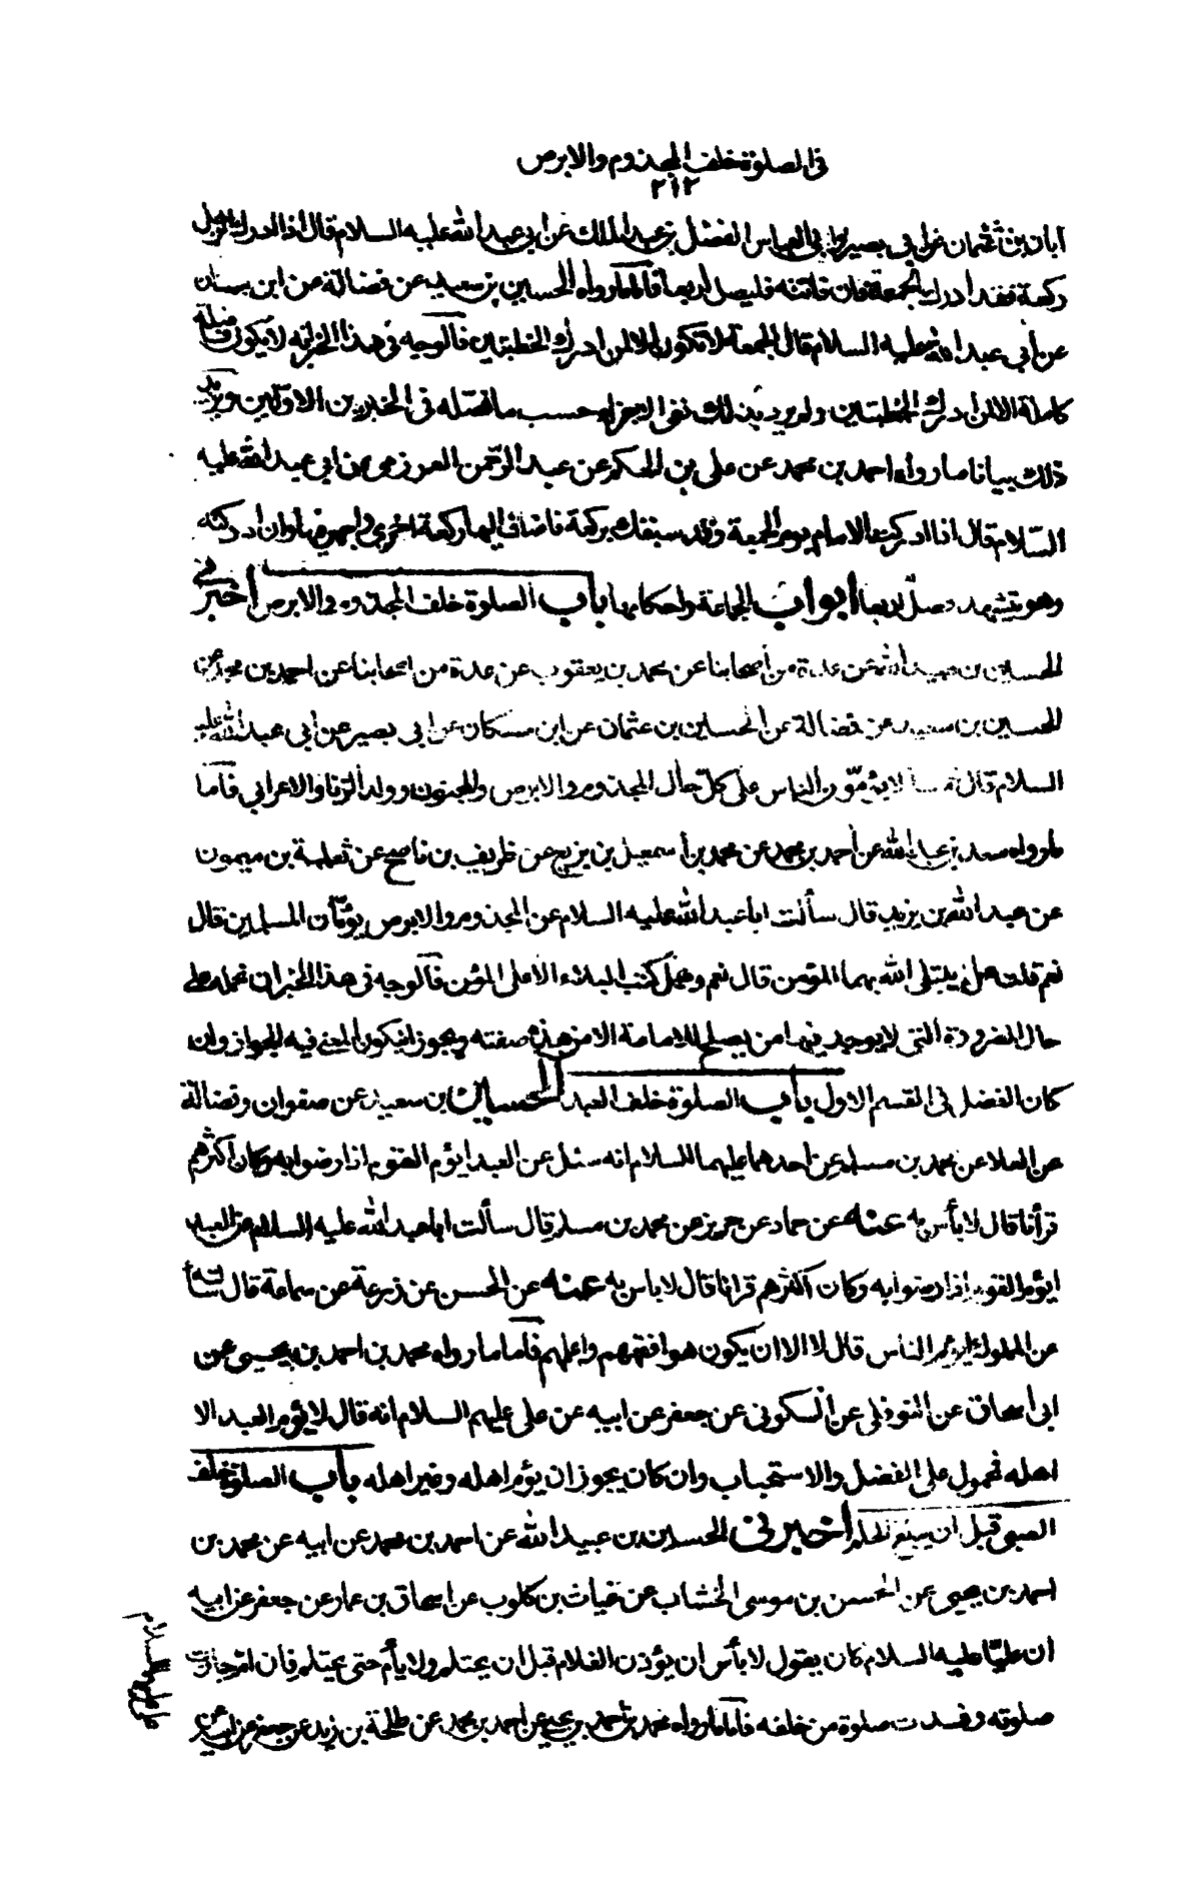 فى الصلوة خلف المجذوم والابرص
٢١٢
ابان بن عثمان عن ابى بصير وابى العباس الفضل بن عبد الملك عن ابى عبد الله عليه السلام قال اذا ادرك الرجل
ركعة فقد ادرك الجمعة فان فاتته فليصل اربعا فاما ما رواه الحسين بن سعيد عن فضالة عن ابن سنان
عن أبى عبد الله عليه السلام قال الجمعة لا تكون الا لمن ادرك الخطبتين فالوجه فى هذا الخبر انه لا يكون فضيلة
كاملة الا لمن ادرك الخطبتين ولم يرد بذلك نفى الاجزاء حسب ما فصله فى الخبرين الاولين ويزيد
ذلك بيانا ما رواه احمد بن محمد عن على بن الحكم عن عبد الرحمن العرزمى عن ابى عبد الله عليه
السلام قال اذا ادركت الامام يوم الجمعة وقد سبقك بركعة فاضاف اليها ركعة اخرى واجهر فيها وان ادركته
وهو يتشهد فصل اربعا ابواب الجماعة واحكامها باب الصلوة خلف المجذوم والابرص أخبرنى
الحسين بن عبيد الله عن عدة من أصحابنا عن محمد بن يعقوب عن عدة من اصحابنا عن احمد بن محمد عن
الحسين بن سعيد عن فضالة عن الحسين بن عثمان عن ابن مسكان عن ابى بصير عن ابى عبد الله عليه
السلام قال خمسة لا يؤمّون الناس على كلّ حال المجذوم والابرص والمجنون وولد الزنا والاعرابى فأما
ما رواه سعد بن عبد الله عن أحمد بن محمد عن محمد بن أسمعيل بن بزيع عن ظريف بن ناصح عن ثعلبة بن ميمون
عن عبد الله بن يزيد قال سألت ابا عبد الله عليه السلام عن المجذوم والابرص يؤمّان المسلمين قال
نعم قلت هل يبتلى الله بهما المؤمن قال نعم وهل كتب البلاء الا على المؤمن فالوجه فى هذا الخبر ان نحمله على
حال الضرورة التى لا يوجد فيها من يصلح للامامة الا من هذه صفته ويجوز ان يكون المعنى فيه الجواز وان
كان الفضل فى القسم الاول باب الصلوة خلف العبد الحسين بن سعيد عن صفوان وفضالة
عن العلا عن محمد بن مسلم عن احدهما عليهما السلام انه سئل عن العبد ايؤم القوم اذا رضوا به وكان اكثرهم
قرأنا قال لا بأس به عنه عن حماد عن حريز عن محمد بن مسلم قال سألت ابا عبد الله عليه السلام عن العبد
ايؤم القوم اذا رضوا به وكان أكثرهم قرانا قال لا باس به عنه عن الحسن عن زرعة عن سماعة قال سألته
عن المملوك ايؤم الناس قال لا الا ان يكون هو افقههم واعلمهم فأما ما رواه محمد بن احمد بن يحيى عن
ابى أسحاق عن النوفلى عن السكونى عن جعفر عن ابيه عن على عليهم السلام انه قال لا يؤم العبد الا
اهله فمحمول على الفضل والاستحباب وان كان يجوز ان يؤم اهله وغير اهله باب الصلوة خلف
الصبى قبل ان يبلغ الحلم أخبرنى الحسين بن عبيد الله عن احمد بن محمد عن ابيه عن محمد بن
احمد بن يحيى عن الحسن بن موسى الخشاب عن غياث بن كلوب عن اسحاق بن عمار عن جعفر عن ابيه
ان عليّا عليه السلام كان يقول لا بأس ان يؤذن الغلام قبل ان يحتلم ولا يأم حتى يحتلم فأن ام جازت
صلوته وفسدت صلوة من خلفه فأما ما رواه محمد بن أحمد بن يحيى عن احمد بن محمد عن طلحة بن زيد عن جعفر عن ابيه عن
على عليه السلام